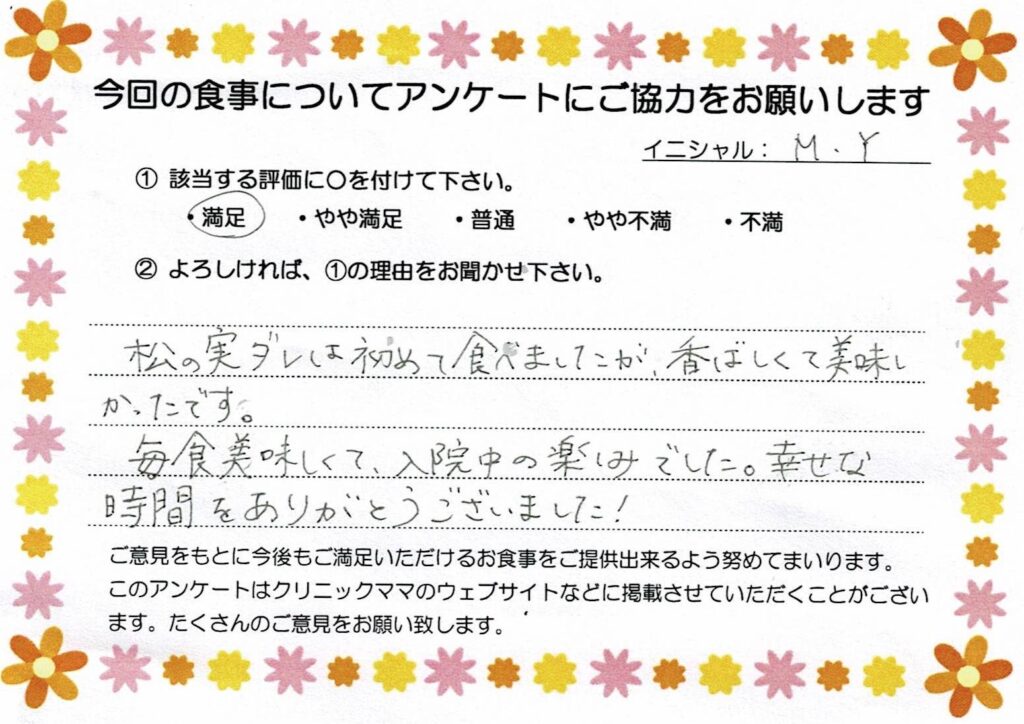 今回の食事についてアンケートにご協力をお願いします
イニシャル： M.Y
① 該当する評価に〇を付けて下さい。
・満足 ・やや満足 ・普通 ・やや不満 ・不満
② よろしければ、①の理由をお聞かせ下さい。
松の実ダレは初めて食べましたが、香ばしくて美味し
かったです。
毎食美味しくて、入院中の楽しみでした。幸せな
時間をありがとうございました！
ご意見をもとに今後もご満足いただけるお食事をご提供出来るよう努めてまいります。
このアンケートはクリニックママのウェブサイトなどに掲載させていただくことがござい
ます。たくさんのご意見をお願い致します。